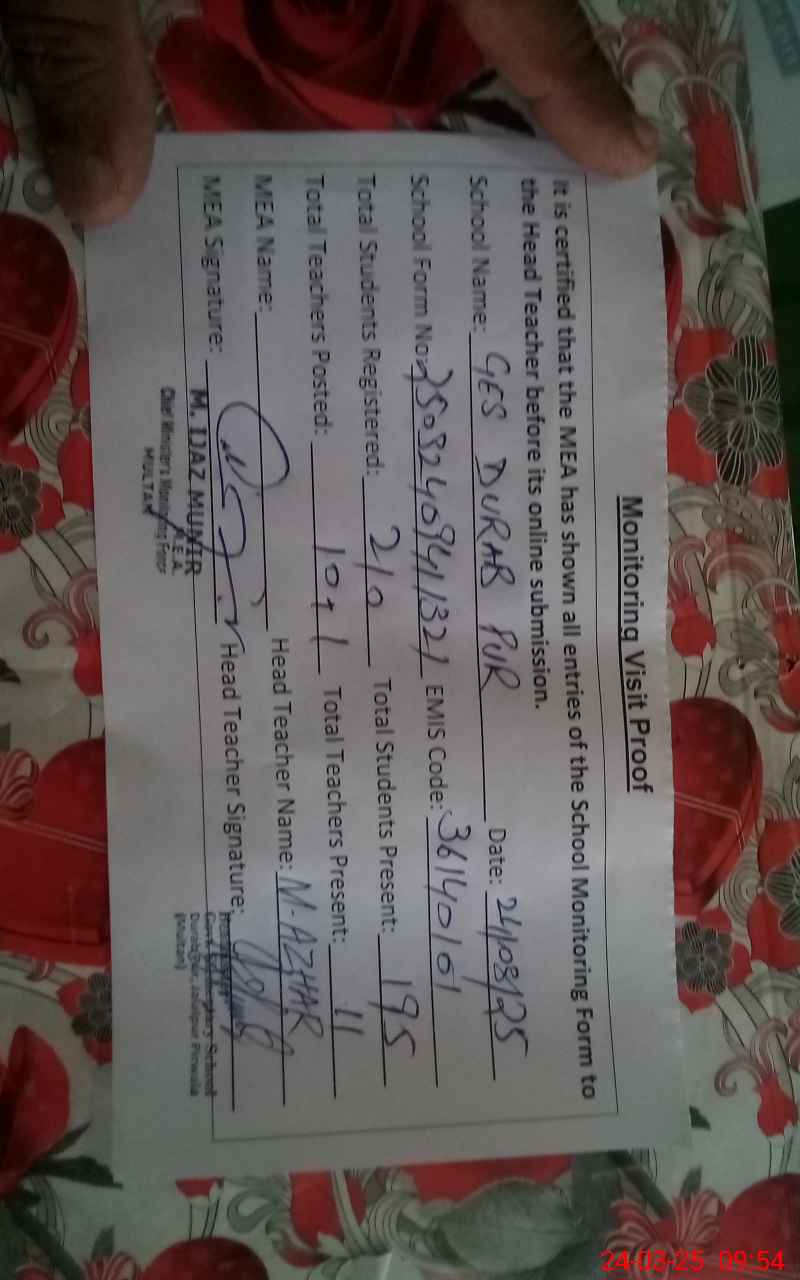 Monitoring Visit Proof
It is certified that the MEA has shown all entries of the School Monitoring Form to
the Head Teacher before its online submission.
School Name: GES DURAB PUR Date: 24/03/25
School Form No: 3503240941321 EMIS Code: 36140101
Total Students Registered: 210 Total Students Present: 195
Total Teachers Posted: 10+1 Total Teachers Present: 11
MEA Name: Head Teacher Name: M-AZHAR
MEA Signature: Head Teacher Signature:
M. IJAZ MUNIR
M.E.A.
Chief Minister's Monitoring Force
MULTAN
Elementary School
Durabpur, Jalalpur Pirwala
(Multan)
24-03-25 09:54